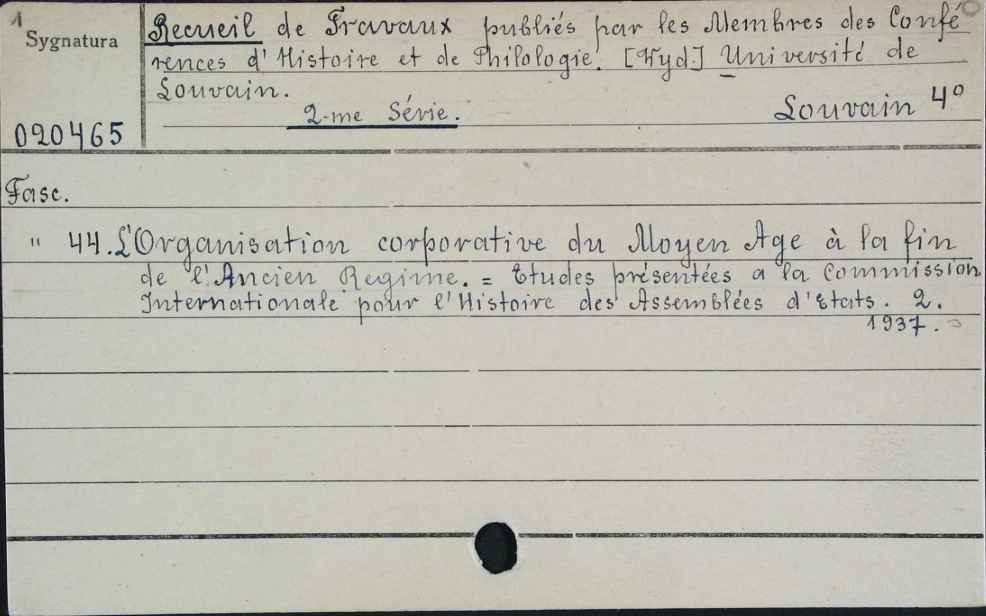 1
Sygnatura
020465
Recueil de Travaux publiés par les Membres des Confé
rences d'Histoire et de Philologie. [Wyd.] Université de
Louvain.
2-me Série. Louvain 4°
Fasc.
" 44. L'Organisation corporative du Moyen Age à la fin
de l'Ancien Regime. = Etudes présentées a la Commission
Internationale pour l'Histoire des Assemblées d'Etats. 2.
1937.